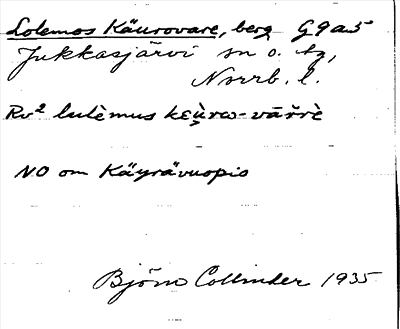 Lolemos Käurovare, berg G9a5
Jukkasjärvi sn o. tg,
Norrb. l.
Rv² lulèmus kɛù̯rω-vāřrè
NO om Käyrävuopis
Björn Collinder 1935